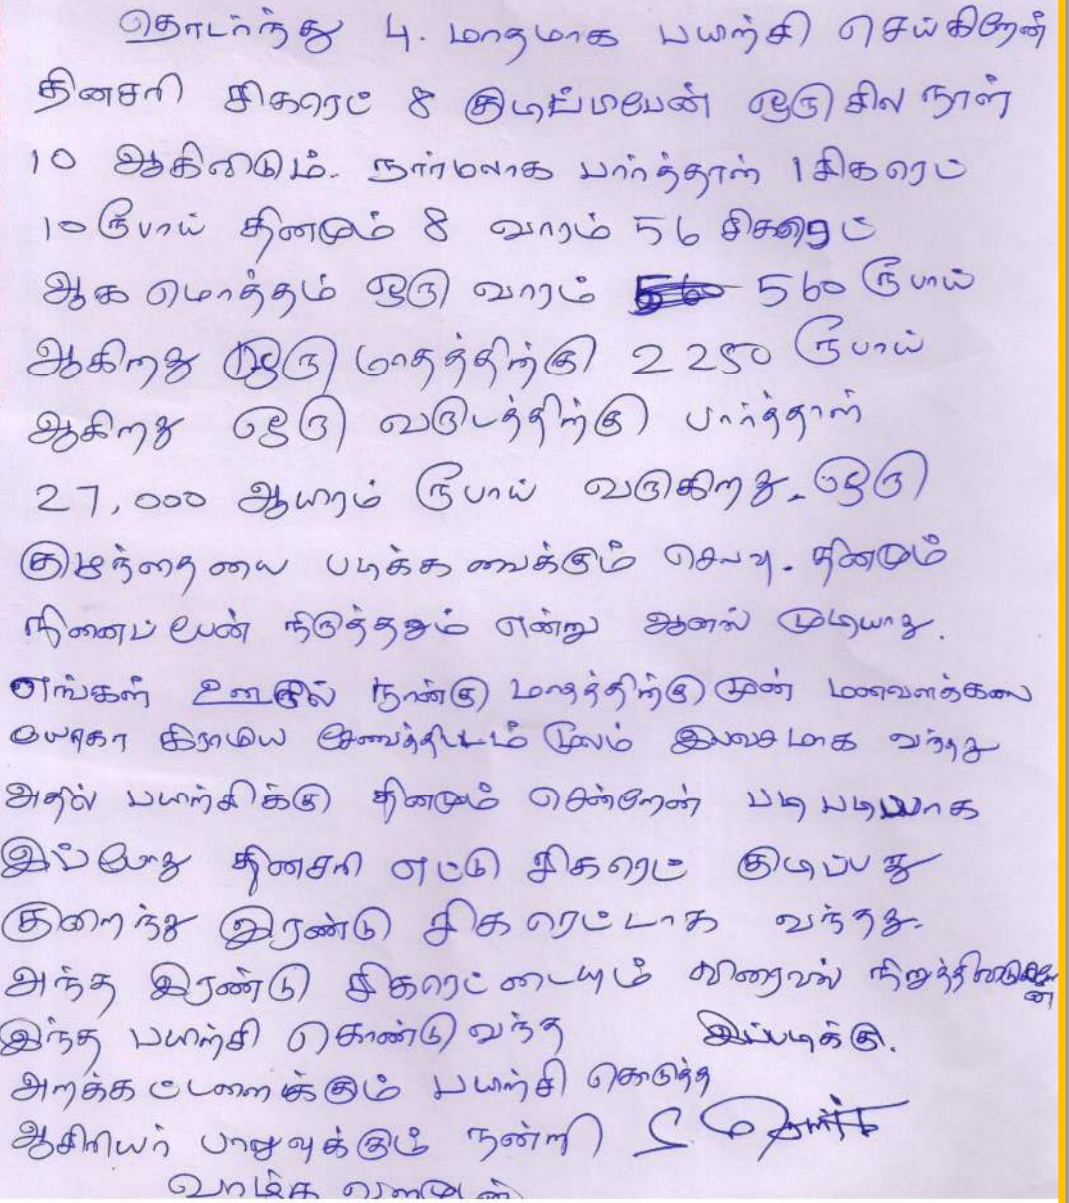 தொடர்ந்து 4. மாதமாக பயற்சி செய்கிறேன்
தினசரி சிகரெட் 8 குடிப்பேன் ஒரு சில நாள்
10 ஆகிவிடும். நார்மலாக பார்த்தால் 1 சிகரெட்
10 ரூபாய் தினமும் 8 வாரம் 56 சிகரெட்
ஆக மொத்தம் ஒரு வாரம் 560 ரூபாய்
ஆகிறது ஒரு மாதத்திற்கு 2250 ரூபாய்
ஆகிறது ஒரு வருடத்திற்கு பார்த்தால்
27,000 ஆயிரம் ரூபாய் வருகிறது. ஒரு
குழந்தையை படிக்க வைக்கும் செலவு. தினமும்
நினைப்பேன் நிருத்தனும் என்று ஆனால் முடியாது.
எங்கள் ஊரில் நான்கு மாதத்திற்கு முன் மனவளக்கலை
யோகா கிராமிய சேவைத்திட்டம் மூலம் இலவசமாக வந்தது
அதில் பயிற்சிக்கு தினமும் சென்றேன் படிபடியாக
இப்போது தினசரி எட்டு சிகரெட் குடிப்பது
குறைந்து இரண்டு சிகரெட்டாக வந்தது.
அந்த இரண்டு சிகரெட்டையும் விரைவில் நிறுத்திவிடுவேன்
இந்த பயிற்சி கொண்டு வந்த இப்படிக்கு.
அறக்கட்டளைக்கும் பயிற்சி கொடுத்த
ஆசிரியர் பாலுவுக்கும் நன்றி
வாழ்க வளமுடன்